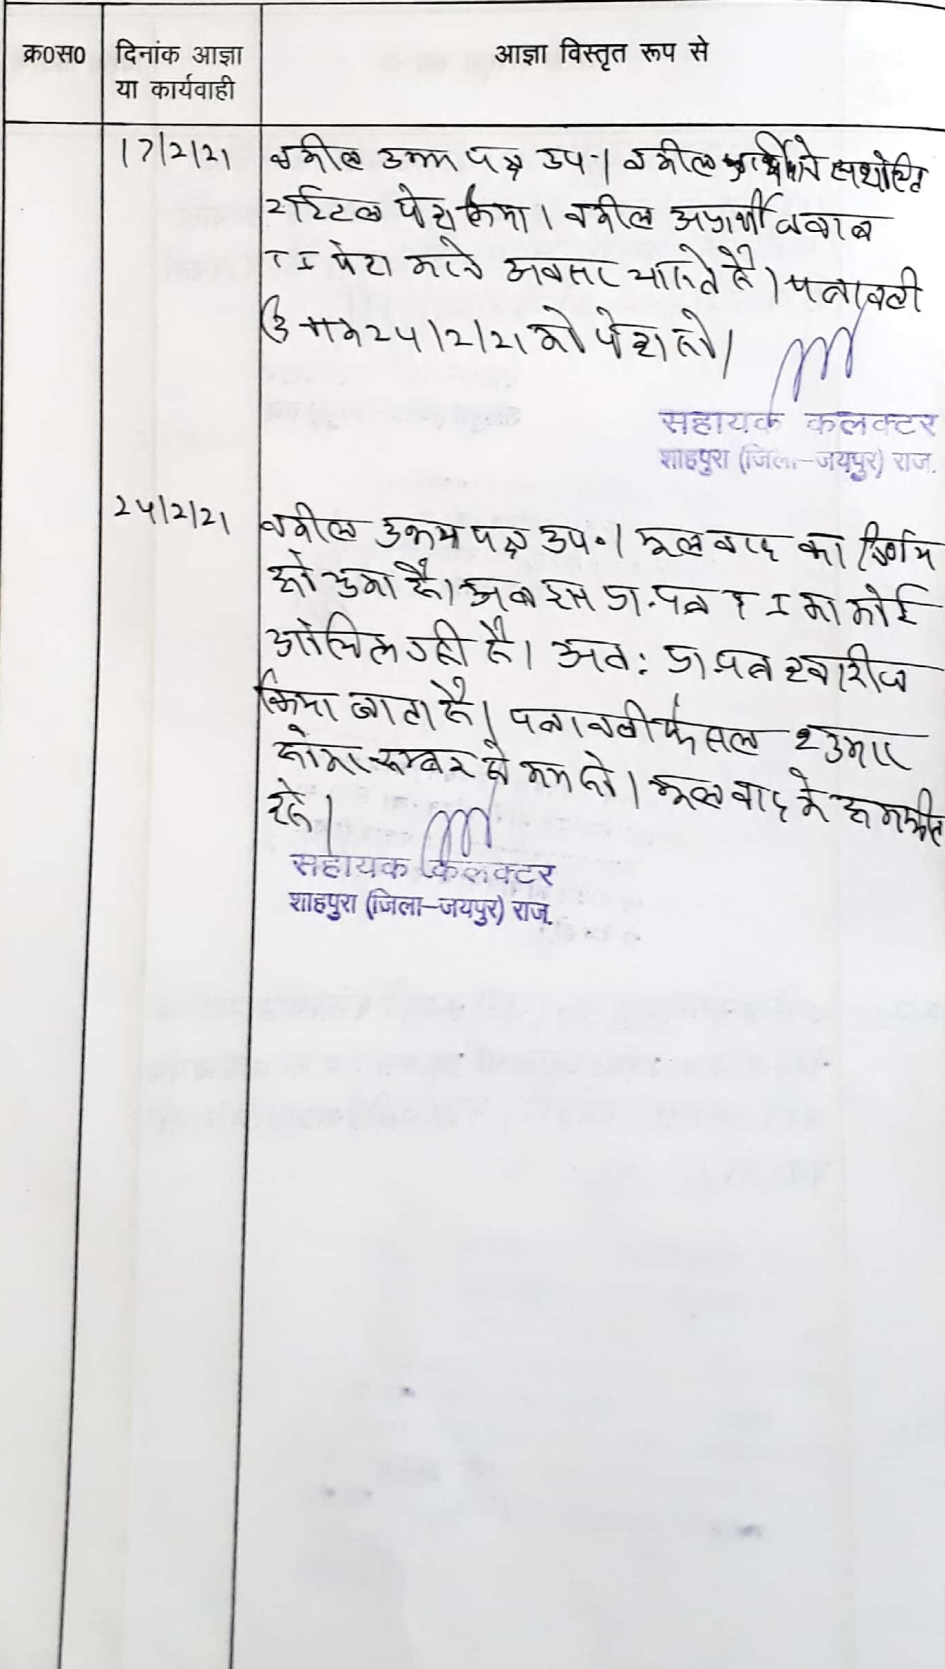 क्र0स0 दिनांक आज्ञा या कार्यवाही आज्ञा विस्तृत रूप से
17/2/21 वकील उभय पक्ष उप.। वकील प्रार्थी ने संशोधित
टाईटल पेश किया। वकील अप्रार्थी जवाब
T I पेश करने अवसर चाहते है। पत्रावली
24/2/21 को पेश हो।
सहायक कलक्टर
शाहपुरा (जिला-जयपुर) राज.
24/2/21 वकील उभय पक्ष उप.। मूल वाद का निर्णय
हो चुका है। अब इस प्रा.पत्र T I का कोई
औचित्य नही है। अत: प्रा.पत्र खारीज
किया जाता है। पत्रावली फैसल शुमार
होकर नम्बर से कम हो। मूल वाद के
रहे।
सहायक कलक्टर
शाहपुरा (जिला-जयपुर) राज.